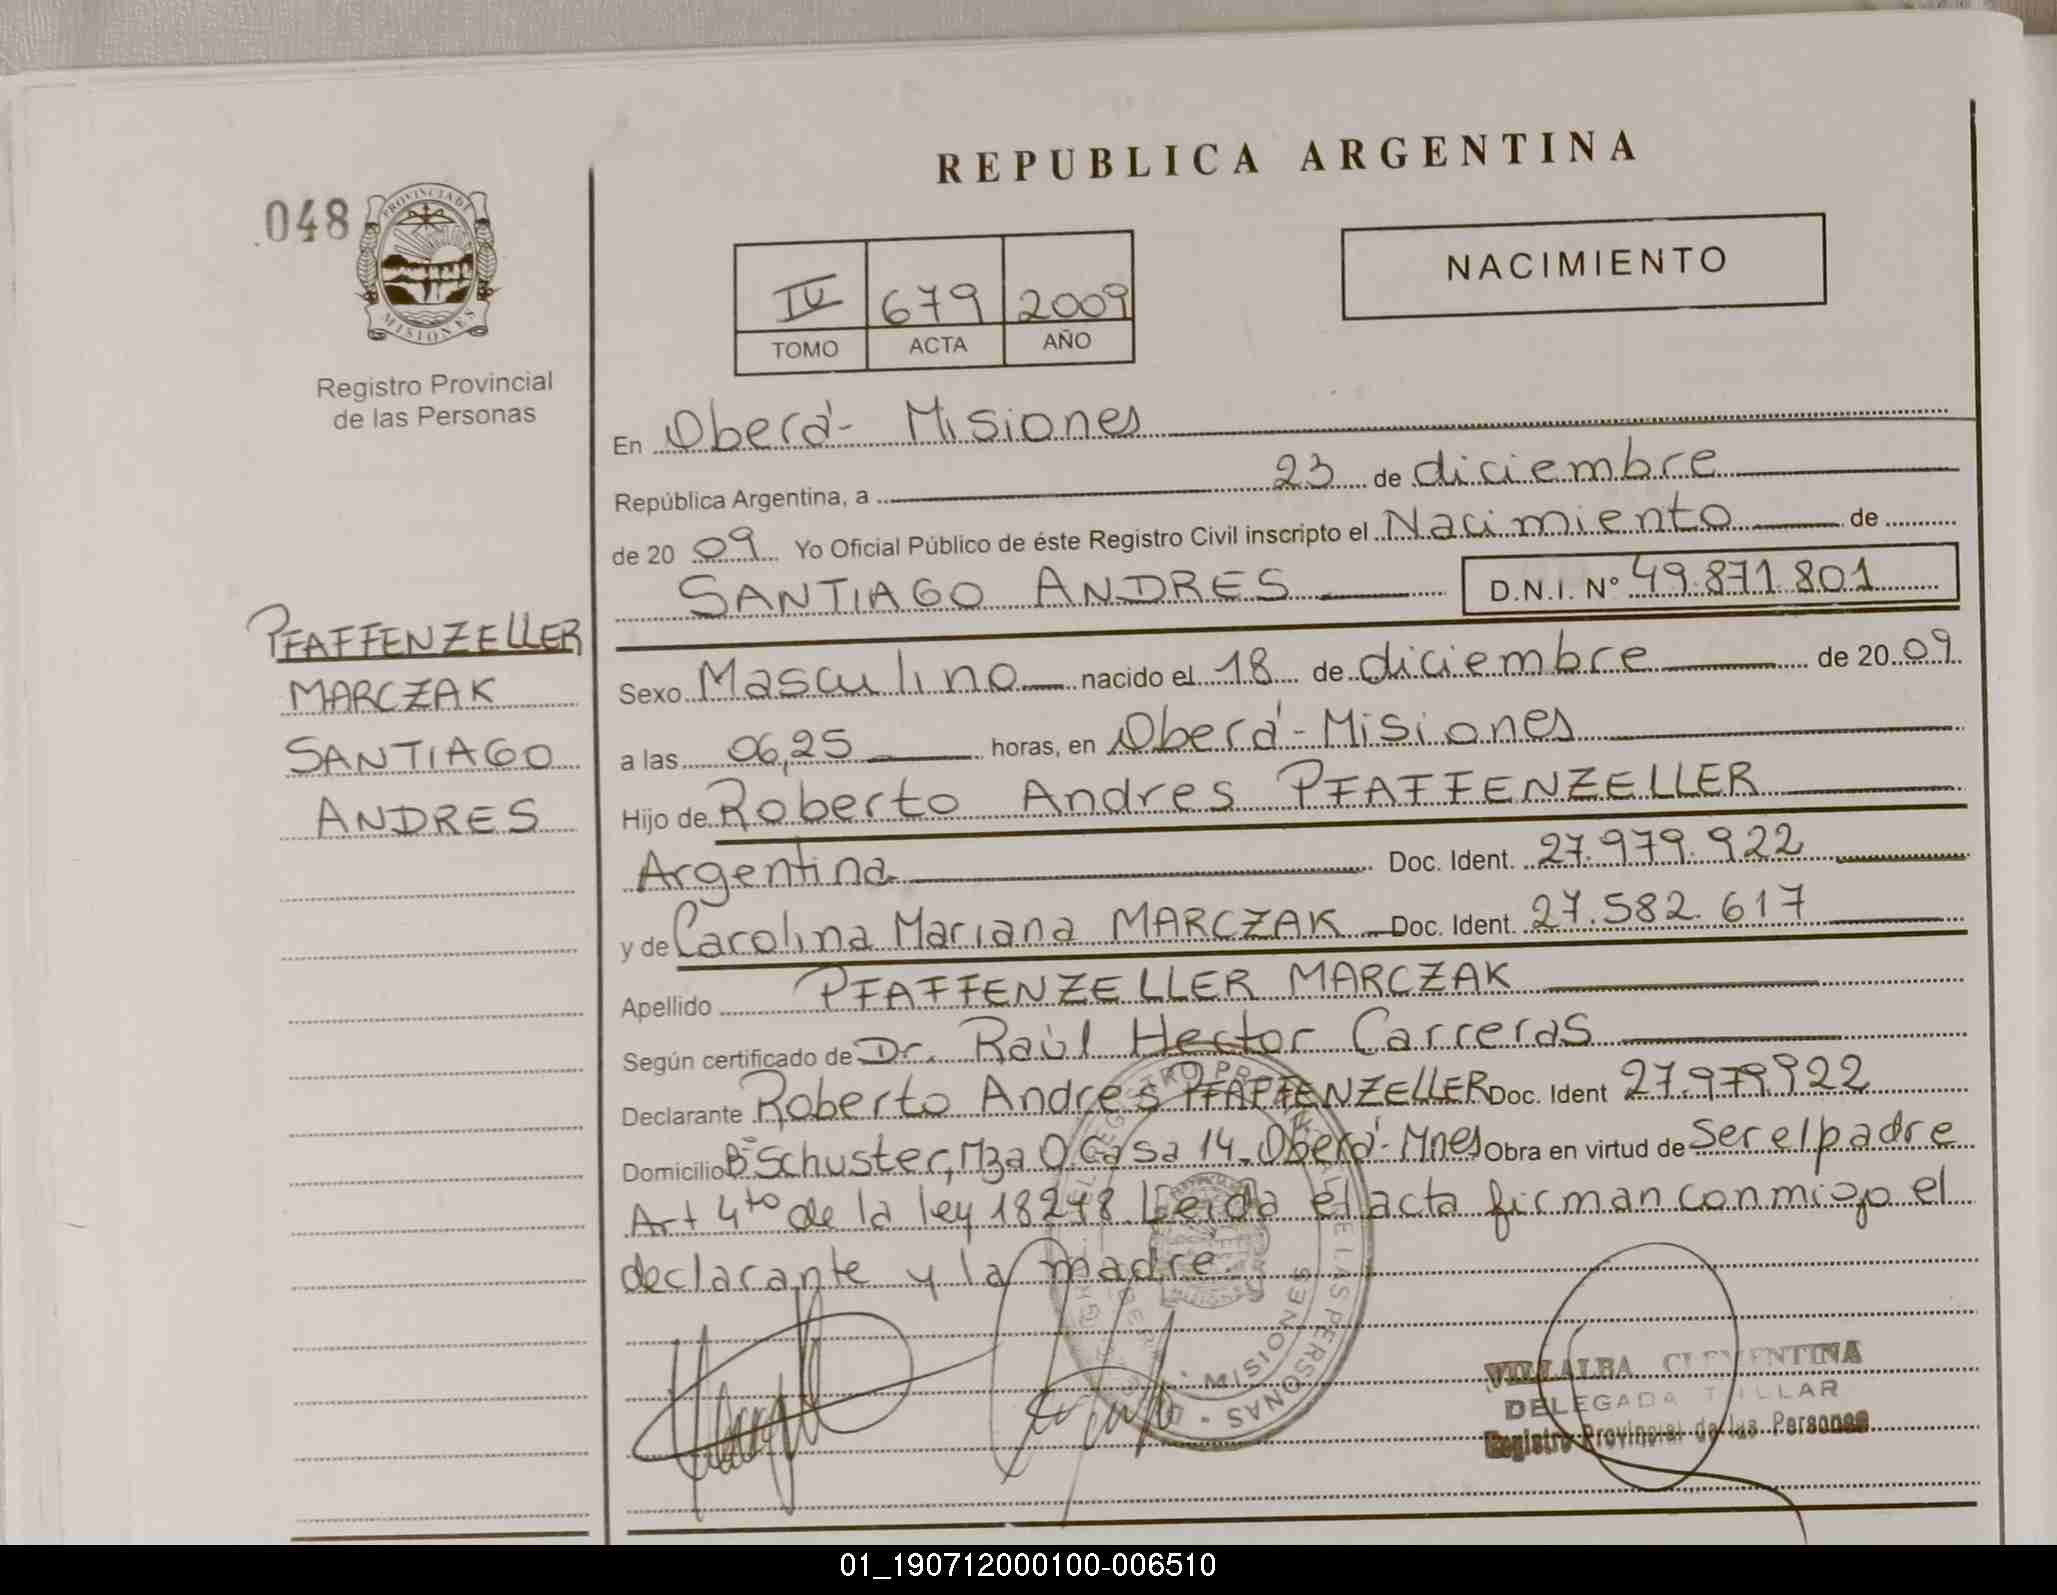 REPUBLICA ARGENTINA
048
PROVINCIA DE
MISIONES
Registro Provincial
de las Personas
NACIMIENTO
IV 679 2009
TOMO ACTA AÑO
En Oberá - Misiones
República Argentina, a 23 de diciembre
de 20 09 Yo Oficial Público de éste Registro Civil inscripto el Nacimiento de
SANTIAGO ANDRES D.N.I. Nº 49.871.801
PFAFFENZELLER
MARCZAK
SANTIAGO
ANDRES
Sexo Masculino nacido el 18 de diciembre de 20 09
a las 06,25 horas, en Oberá - Misiones
Hijo de Roberto Andres PFAFFENZELLER
Argentina Doc. Ident. 27.979.922
y de Carolina Mariana MARCZAK Doc. Ident. 27.582.617
Apellido PFAFFENZELLER MARCZAK
Según certificado de Dr. Raúl Hector Carreras
Declarante Roberto Andres PFAFFENZELLER Doc. Ident 27.979.922
Domicilio Bº Schuster, Mza O. Casa 14. Oberá - Mnes Obra en virtud de Ser el padre
Art 4to de la ley 18248. Leida el acta firman conmigo el
declarante y la madre.
MISIONES
VILLALBA CLEMENTINA
DELEGADA TITULAR
Registro Provincial de las Personas
01_190712000100-006510